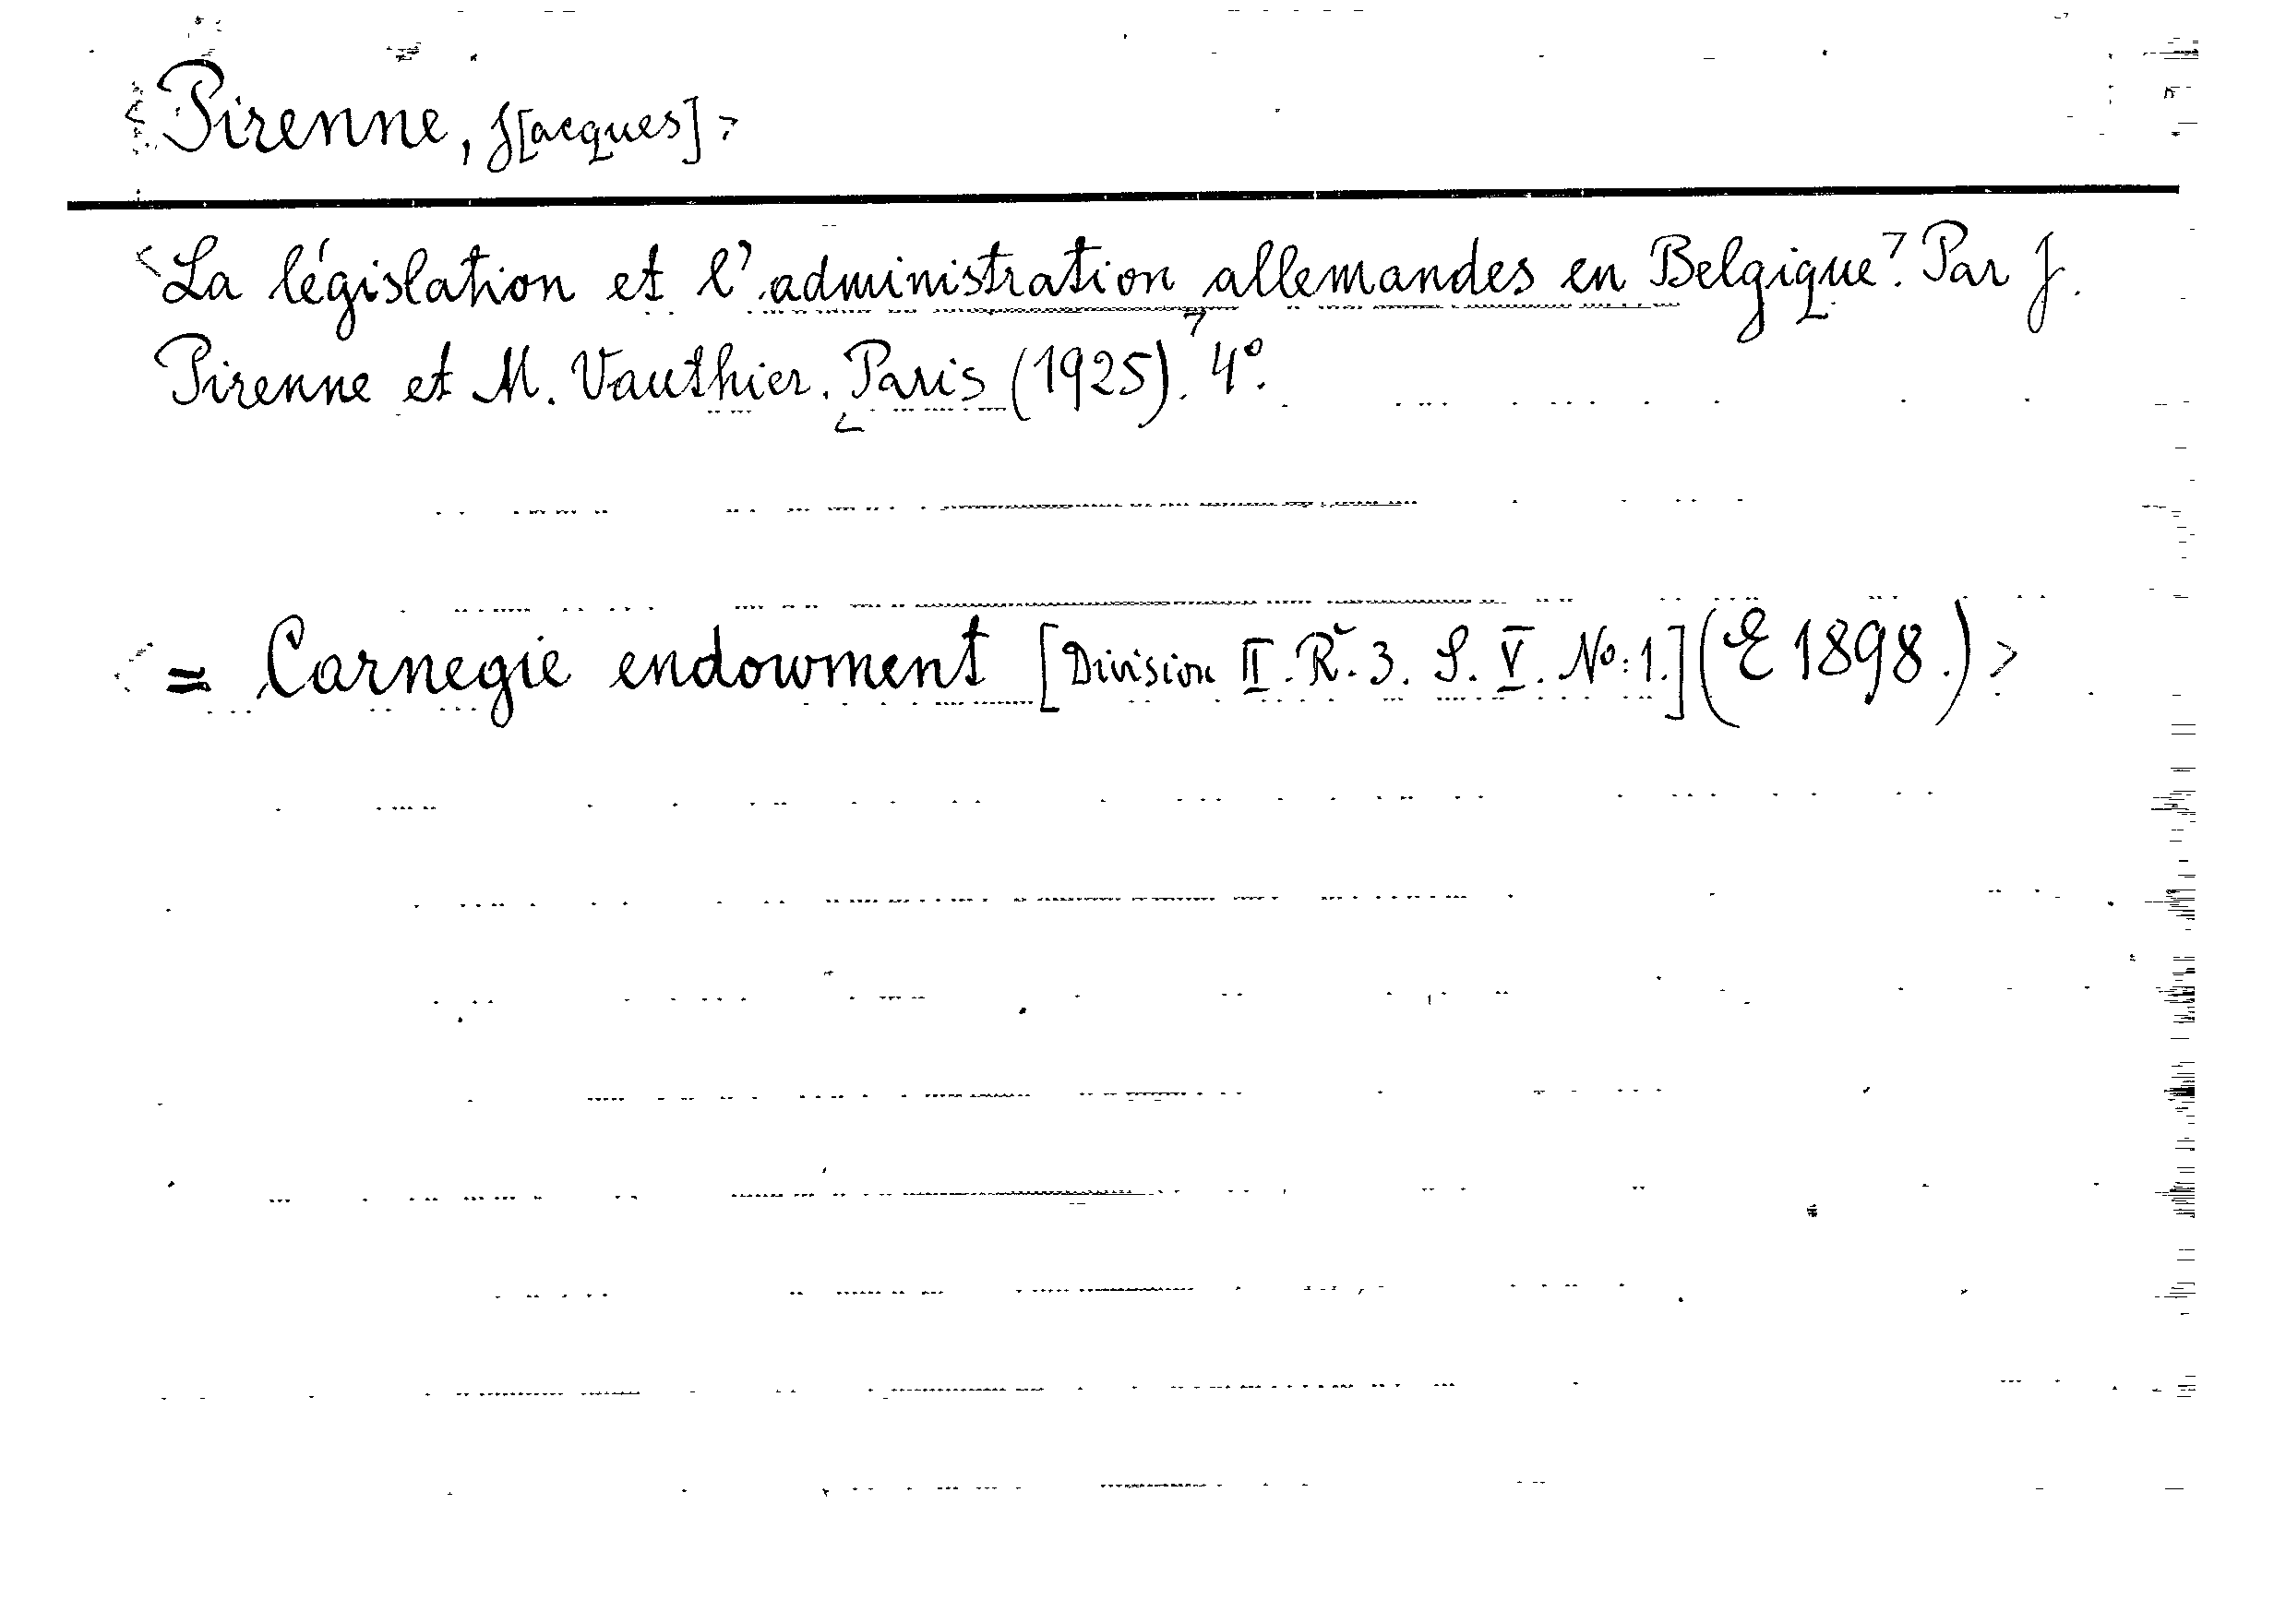 <Pirenne, J[acques]>
<La législation et l'administration allemandes en Belgique.> Par J.
Pirenne et M. Vauthier. <Paris (1925).> 4º.
<= Carnegie endowment [Division II. R. 3. S. V. No: 1.] (E 1898.)>